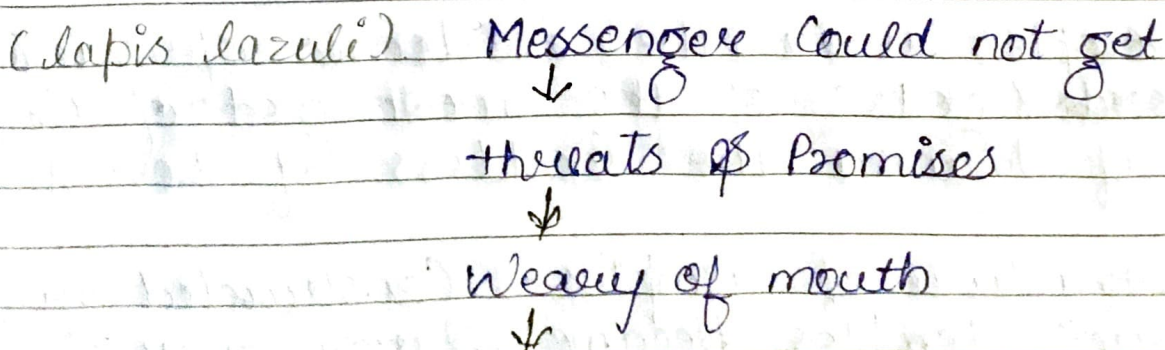 (lapis lazuli) Messenger Could not get
↓
threats & Promises
↓
Weary of mouth
↓